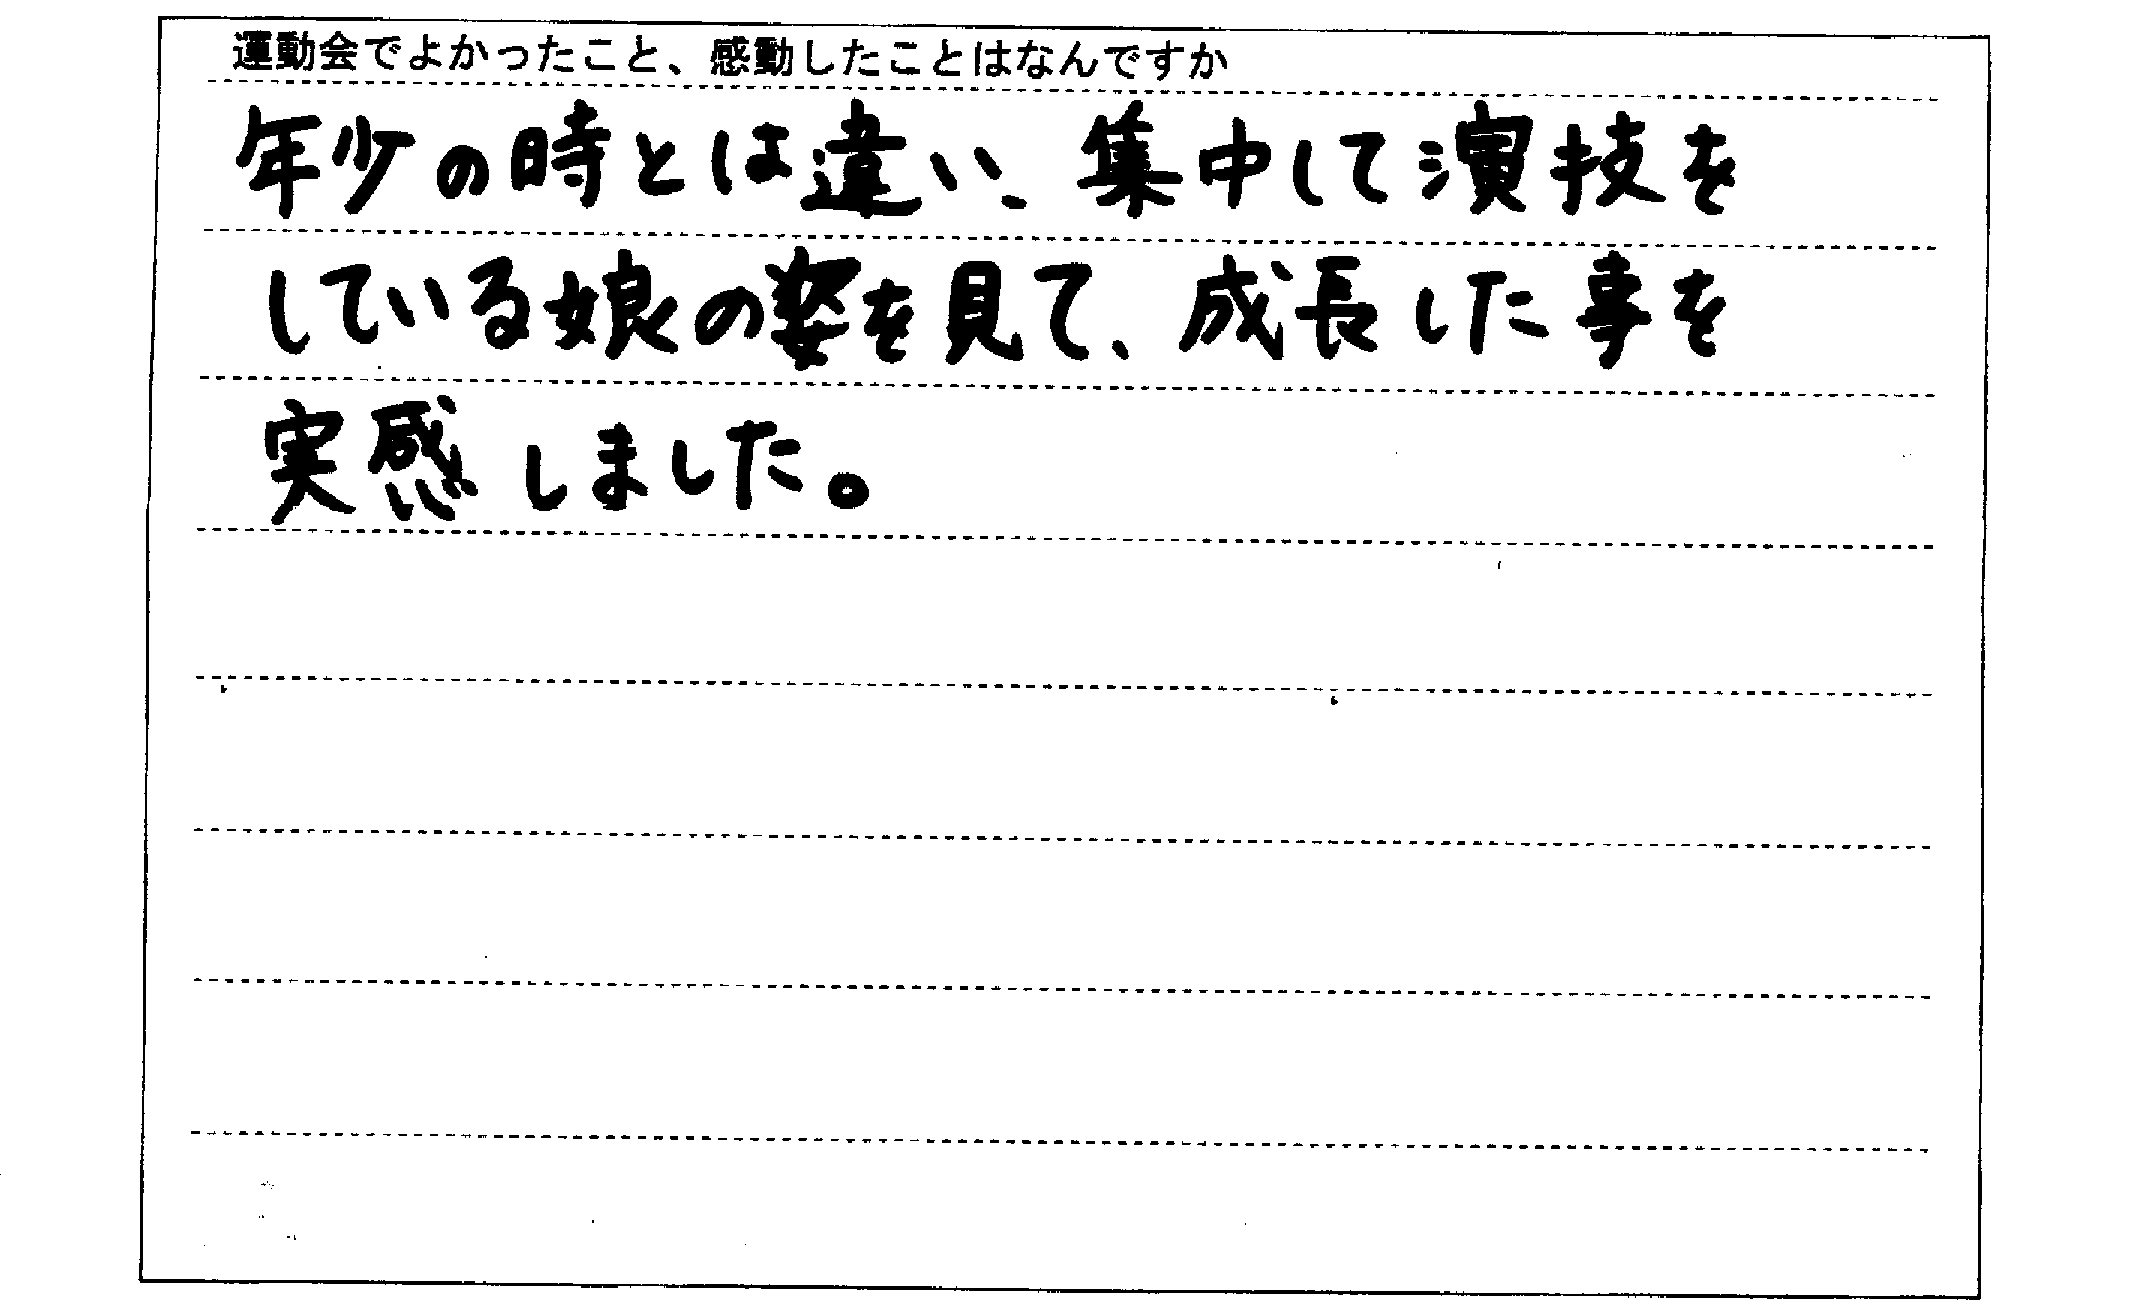 運動会でよかったこと、感動したことはなんですか
年少の時とは違い、集中して演技を
している娘の姿を見て、成長した事を
実感しました。